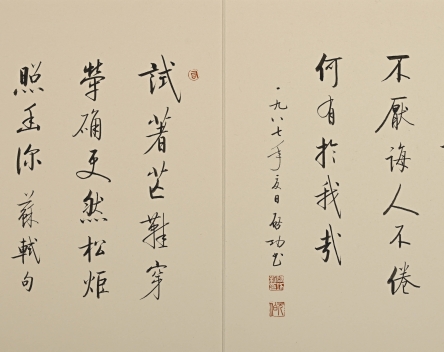 不厭誨人不倦
何有於我哉
一九八七年夏日啟功書
試著芒鞋穿
犖确更然松炬
照幽深 蘇軾句